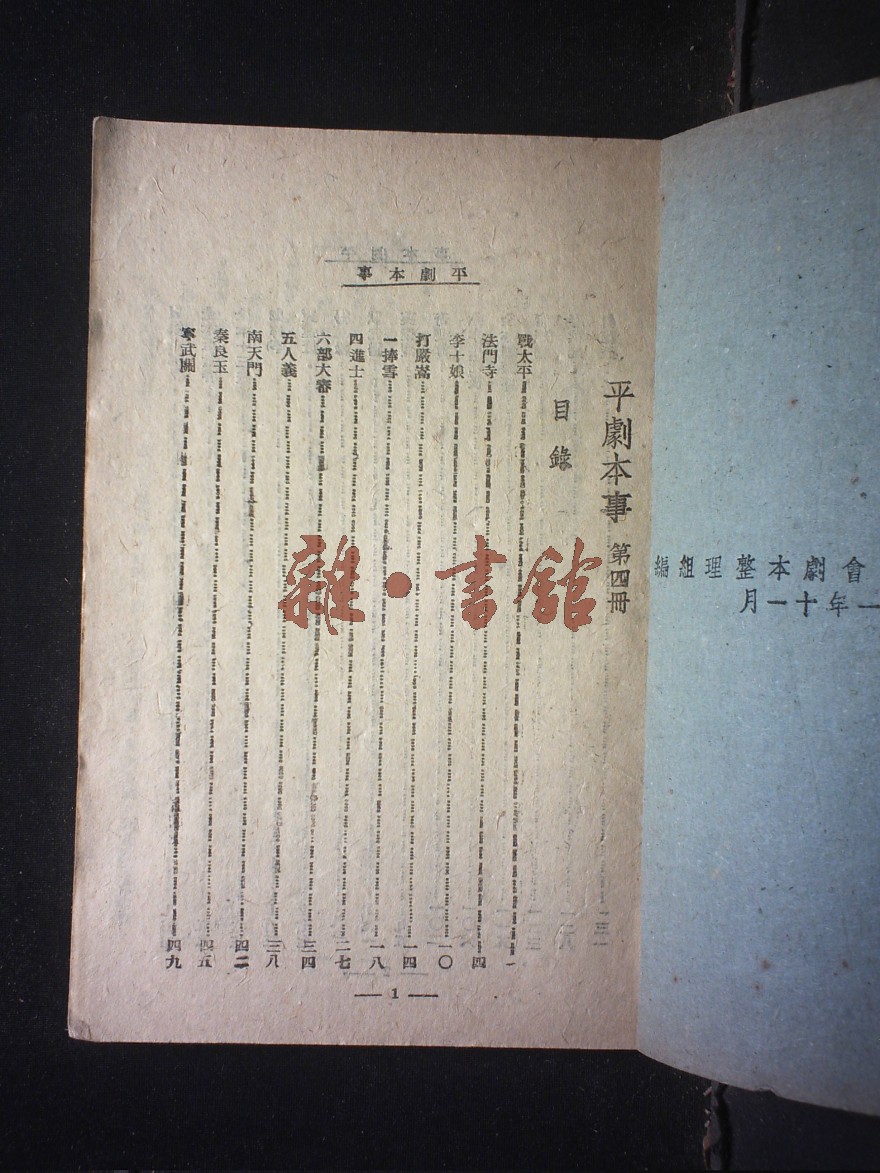 會劇本整理組編
一年十一月
平劇本事
平劇本事 第四冊
目錄
戰太平 一
法門寺 四
李十娘 一〇
打嚴嵩 一四
一捧雪 一八
四進士 二七
六部大審 三四
五人義 三八
南天門 四二
秦良玉 四五
寧武關 四九
— 1 —
雜·書館